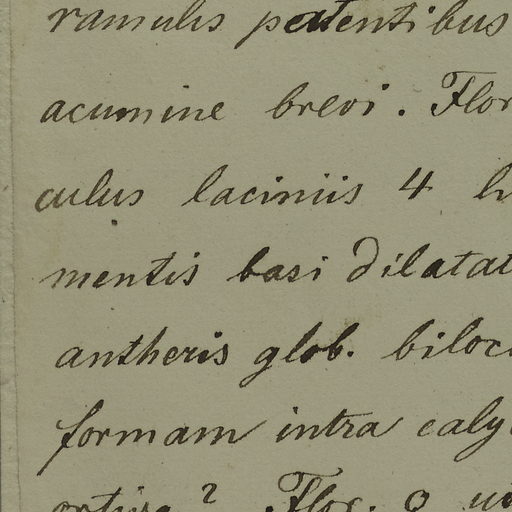 ramulis patentibus
acumine brevi. Flor
culus laciniis 4 h
mentis basi dilatat
antheris glob. biloc
formam intra caly
? Flor. o